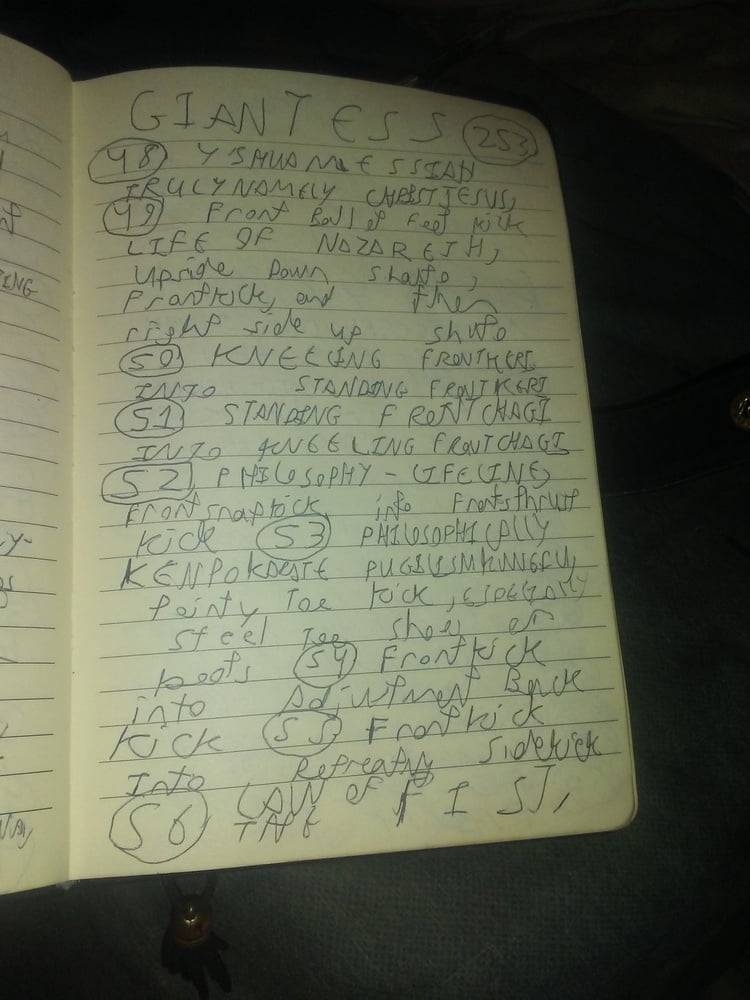 GIANTESS 253
48 Y'SHUA MESSIAH
TRULY NAMELY CHRIST JESUS,
49 Front Ball of Feet kick
LIFE OF NAZARETH,
Upside Down shuto,
Frontkick, and then
right side up shuto
50 KNEELING FRONTKERI
INTO STANDING FRONTKERI
51 STANDING FRONTCHAGI
INTO KNEELING FRONTCHAGI
52 PHILOSOPHY - LIFELINE,
Frontsnapkick into Frontsthrust
kick 53 PHILOSOPHICALLY
KENPOKARATE PUGILISMKUNGFU,
Pointy Toe kick, ESPECIALLY
steel Toe shoes or
boots 54 Frontkick
into Adjustment Back
kick 55 Frontkick
Into Retreating Sidekick
56 THE LAW OF FIST,